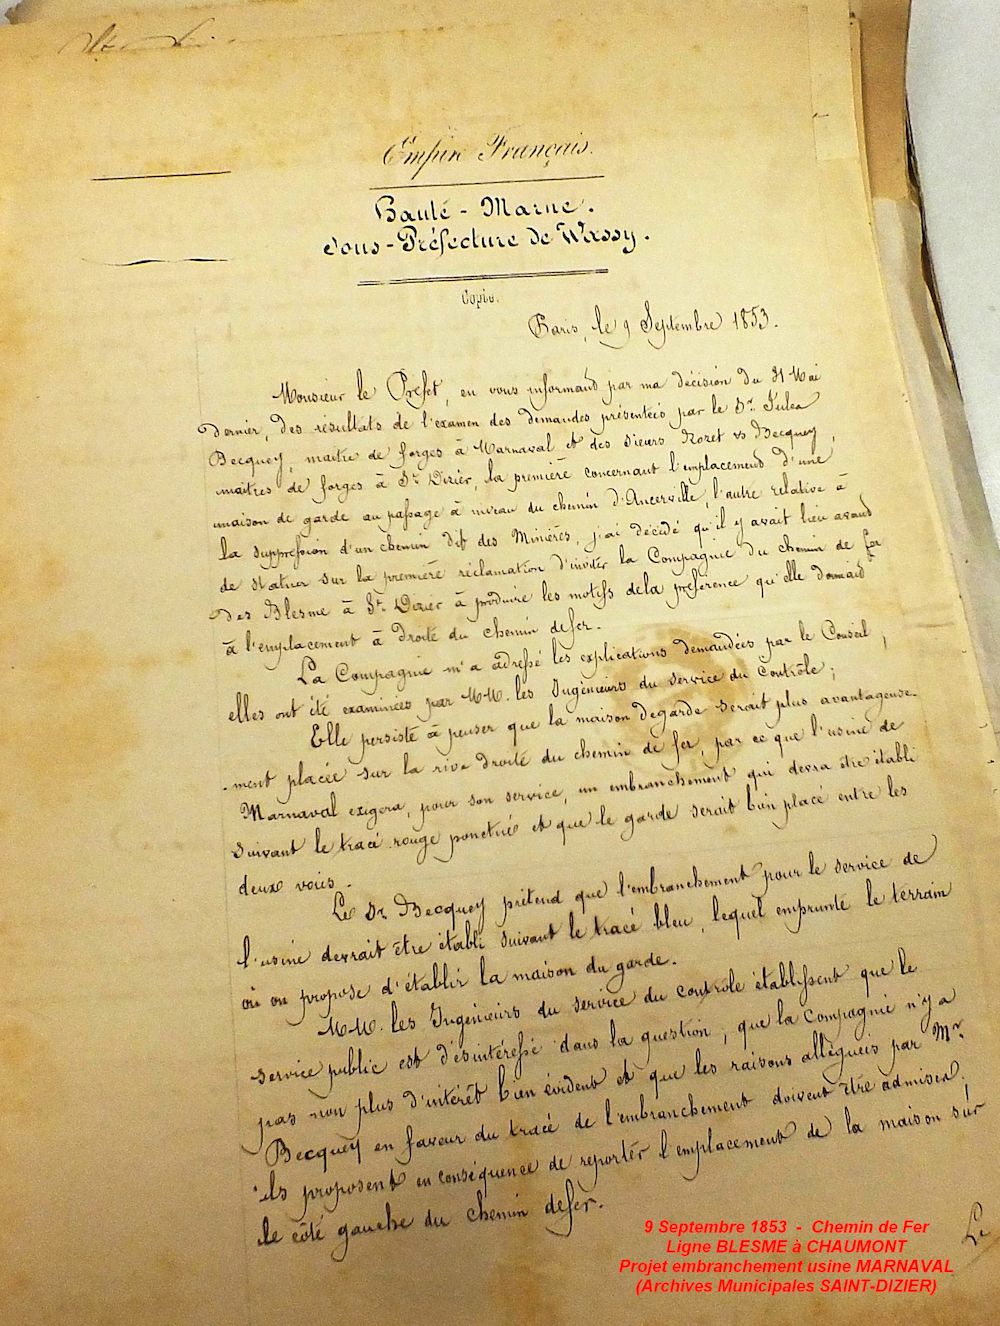 Empire Français.
Haute-Marne.
Sous-Préfecture de Wassy.
Copie.
Paris, le 9 Septembre 1853.
Monsieur le Préfet, en vous informant par ma décision du 31 Mai
dernier, des résultats de l'examen des demandes présentées par le Sr. Jules
Becquey, maitre de forges à Marnaval et des sieurs Rozet et Becquey,
maitres de forges à St. Dizier, la première concernant l'emplacement d'une
maison de garde au passage à niveau du chemin d'Ancerville, l'autre relative à
la suppression d'un chemin dit des Minières, j'ai décidé qu'il y avait lieu avant
de statuer sur la première réclamation d'inviter la Compagnie du chemin de fer
des Blesme à St. Dizier à produire les motifs dela préférence qu'elle donnait
à l'emplacement à droite du chemin defer.
La Compagnie m'a adressé les explications demandées par le Conseil,
elles ont été examinées par MM. les Ingénieurs du service du Contrôle;
Elle persiste à penser que la maison degarde serait plus avantageuse-
-ment placée sur la rive droite du chemin de fer, par ce que l'usine de
Marnaval exigera, pour son service, un embranchement qui devra être établi
suivant le tracé rouge ponctué et que le garde serait bien placé entre les
deux voies.
Le Sr. Becquey prétend que l'embranchement pour le service de
l'usine devrait être établi suivant le tracé bleu, lequel emprunte le terrain
où on propose d'établir la maison du garde.
MM. les Ingénieurs du service du contrôle établissent que le
service public est désintéressé dans la question, que la Compagnie n'y a
pas non plus d'intérêt bien évident et que les raisons alléguées par Mr.
Becquey en faveur du tracé de l'embranchement doivent être admises;
ils proposent en conséquence de reporter l'emplacement de la maison sur
le côté gauche du chemin defer.
Le
9 Septembre 1853 - Chemin de Fer
Ligne BLESME à CHAUMONT
Projet embranchement usine MARNAVAL
(Archives Municipales SAINT-DIZIER)